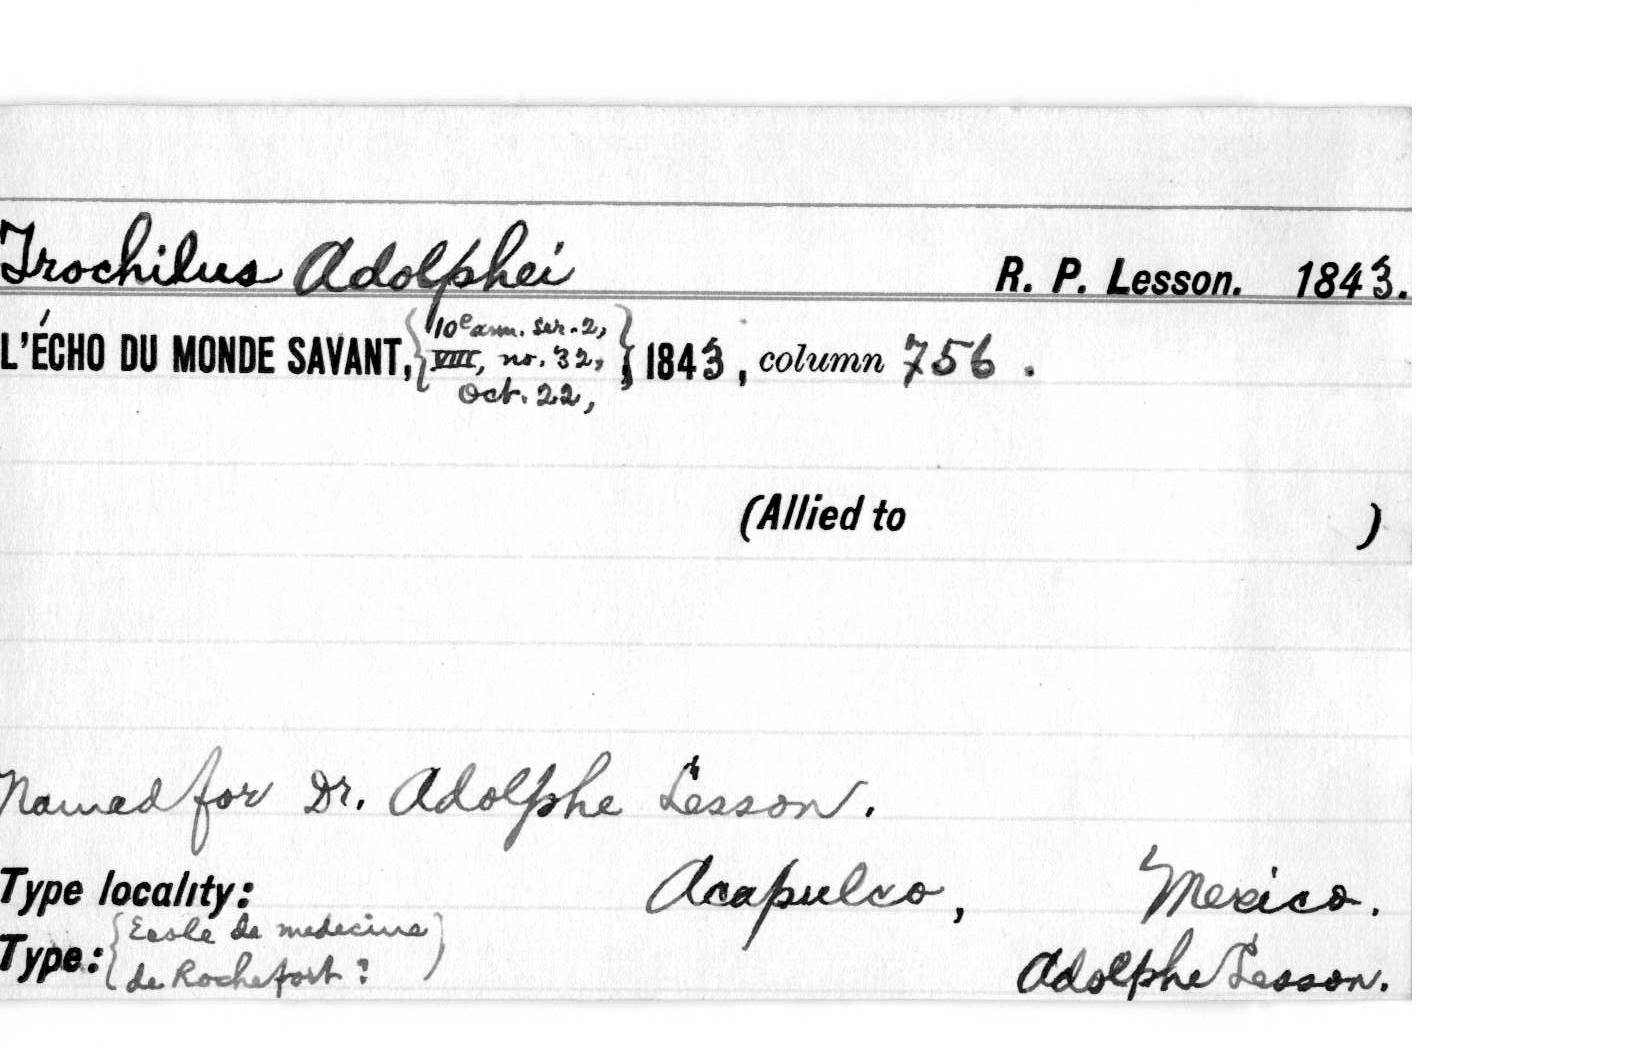 Trochilus Adolphei R. P. Lesson. 1843.
L'ÉCHO DU MONDE SAVANT, {10e ann. ser. 2,
VIII, no. 32,
Oct. 22,}, 1843, column 756.
(Allied to )
Named for Dr. Adolphe Lesson.
Type locality: Acapulco, Mexico.
Type: {Ecole de medecine
de Rochefort ?} Adolphe Lesson.